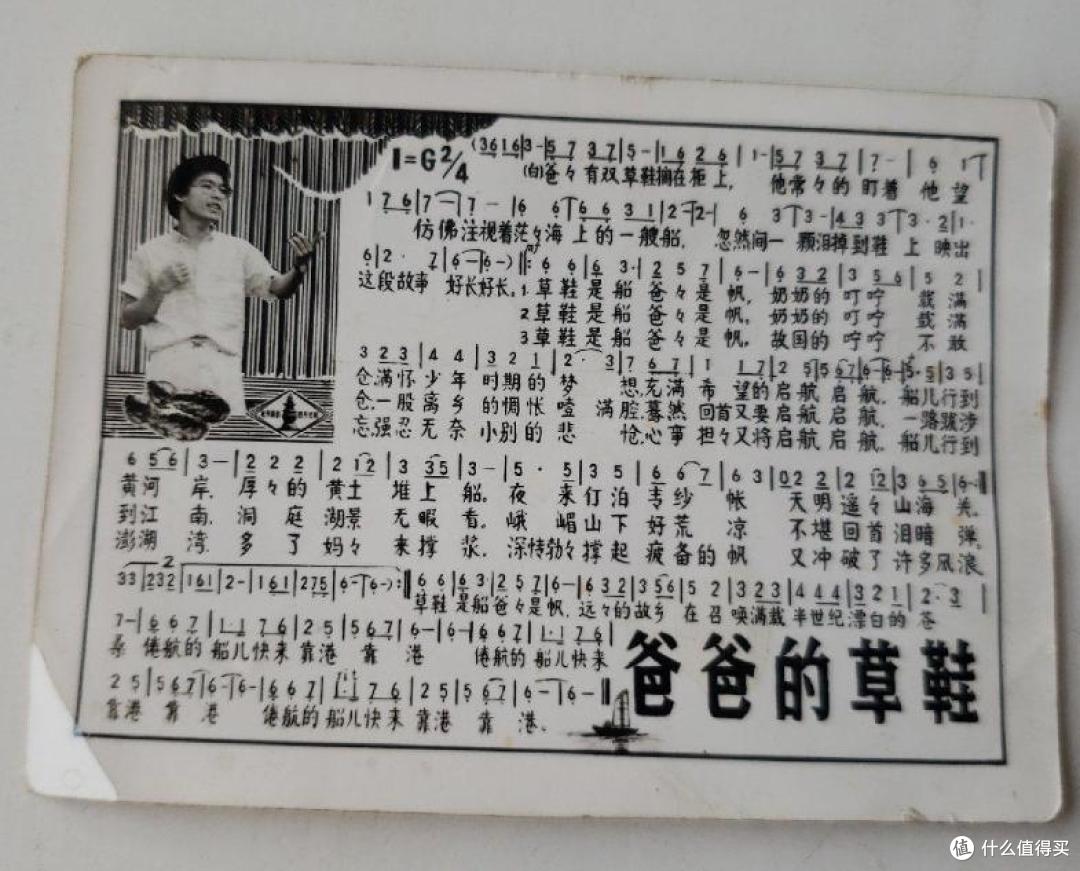 1=G 2/4
(3 6 1 6 | 3 - | 5 7 3 7 | 5 - | 1 6 2 6 | 1 - | 5 7 3 7 | 7 - | 6 1
(白)爸々有双草鞋搁在柜上， 他常々的盯着 他望
1 7 6 | 7 - | 7 - | 6 6 | 6 6 3 1 | 2 - | 2 - | 6 3 | 3 - | 4 3 3 | 3 · 2 | 1 ·
仿佛注视着茫々海上的一艘船， 忽然间一颗泪掉到鞋上映出
6 | 2 · 7 | 6 - | 6 - ) ‖: 6 6 | 6 3 · | 2 5 7 | 6 - | 6 3 2 | 3 5 6 | 5 2 |
这段故事 好长好长。1 草鞋是船 爸々是帆， 奶奶的叮咛 载满
2 草鞋是船 爸々是帆， 奶奶的叮咛 载满
3 草鞋是船 爸々是帆， 故国的咛咛 不敢
3 2 3 | 4 4 | 3 2 1 | 2 · 3 | 7 6 7 | 1 1 | 1 7 | 2 5 | 5 6 7 | 6 - | 6 - | 5 · 5 | 3 5 |
仓满怀少年时期的梦 想，充满希望的启航启航，船儿行到
仓，一股离乡的惆怅噎 满腔，蓦然回首又要启航启航，一路跋涉
忘，强忍无奈小别的悲 怆，心事担々又将启航启航，船儿行到
6 5 6 | 3 - | 2 2 2 | 2 1 2 | 3 3 5 | 3 - | 5 · 5 | 3 5 | 6 6 7 | 6 3 | 0 2 2 | 2 1 2 | 3 6 5 | 6 - ‖
黄河岸，厚々的黄土堆上船。夜来仃泊青纱帐 天明遥々山海关，
到江南，洞庭湖景无暇看，峨嵋山下好荒凉 不堪回首泪暗弹，
澎湖湾，多了妈々来撑浆，深情款々撑起疲备的帆 又冲破了许多风浪
3 3 | 2 3 2 | 1 6 1 | 2 - | 1 6 1 | 2 7 5 | 6 - | 6 - :‖ 6 6 | 6 3 · | 2 5 7 | 6 - | 6 3 2 | 3 5 6 | 5 2 | 3 2 3 | 4 4 4 | 3 2 1 | 2 · 3 |
草鞋是船爸々是帆，远々的故乡在召唤满载半世纪漂白的苍
7 - | 6 6 7 | 1 · 1 7 6 | 2 5 | 5 6 7 | 6 - | 6 - | 6 6 7 | 1 · 1 7 6 |
桑 倦航的船儿快来靠港 靠港 倦航的船儿快来
2 5 | 5 6 7 | 6 - | 6 - | 6 6 7 | 1 · 1 | 7 6 | 2 5 | 5 6 7 | 6 - | 6 - ‖
靠港 靠港 倦航的船儿快来靠港 靠港．
爸爸的草鞋
值 什么值得买